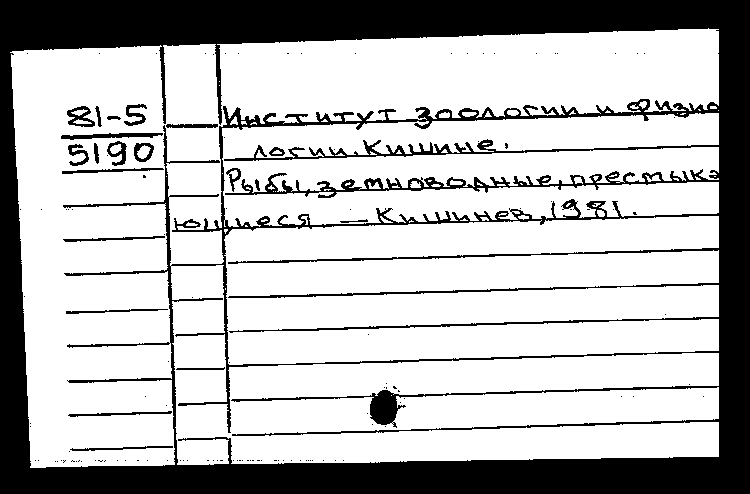 81-5
5190
Институт зоологии и физио
логии. Кишине.
Рыбы, земноводные, пресмыка
ющиеся — Кишинев, 1981.